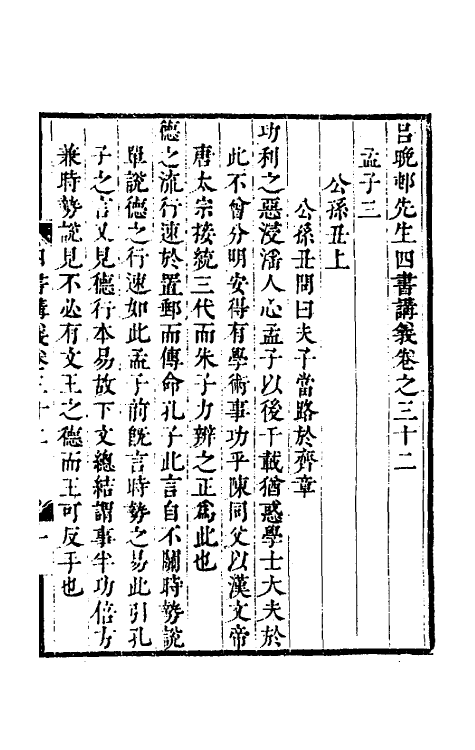 呂晚邨先生四書講義卷之三十二
孟子三
公孫丑上
公孫丑問曰夫子當路於齊章
功利之惡浸淫人心孟子以後千載猶惑學士大夫於
此不曾分明安得有學術事功乎陳同父以漢文帝
唐太宗接統三代而朱子力辨之正爲此也
德之流行速於置郵而傳命孔子此言自不關時勢說
單說德之行速如此孟子前旣言時勢之易此引孔
子之言又見德行本易故下文總結謂事半功倍方
兼時勢說見不必有文王之德而王可反手也
四書講義卷三十二 一